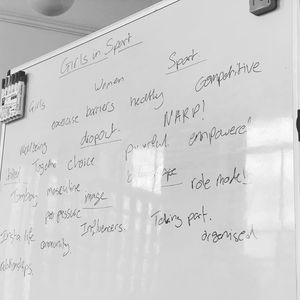 Girls in Sport
Women Sport
Girls exercise barriers healthy Competitive
wellbeing dropout. NARP!
Together choice powerful empowered
Tomboy masculine image role model
peer pressure
Insta life community. Influencers. Taking part.
organised
relationships.